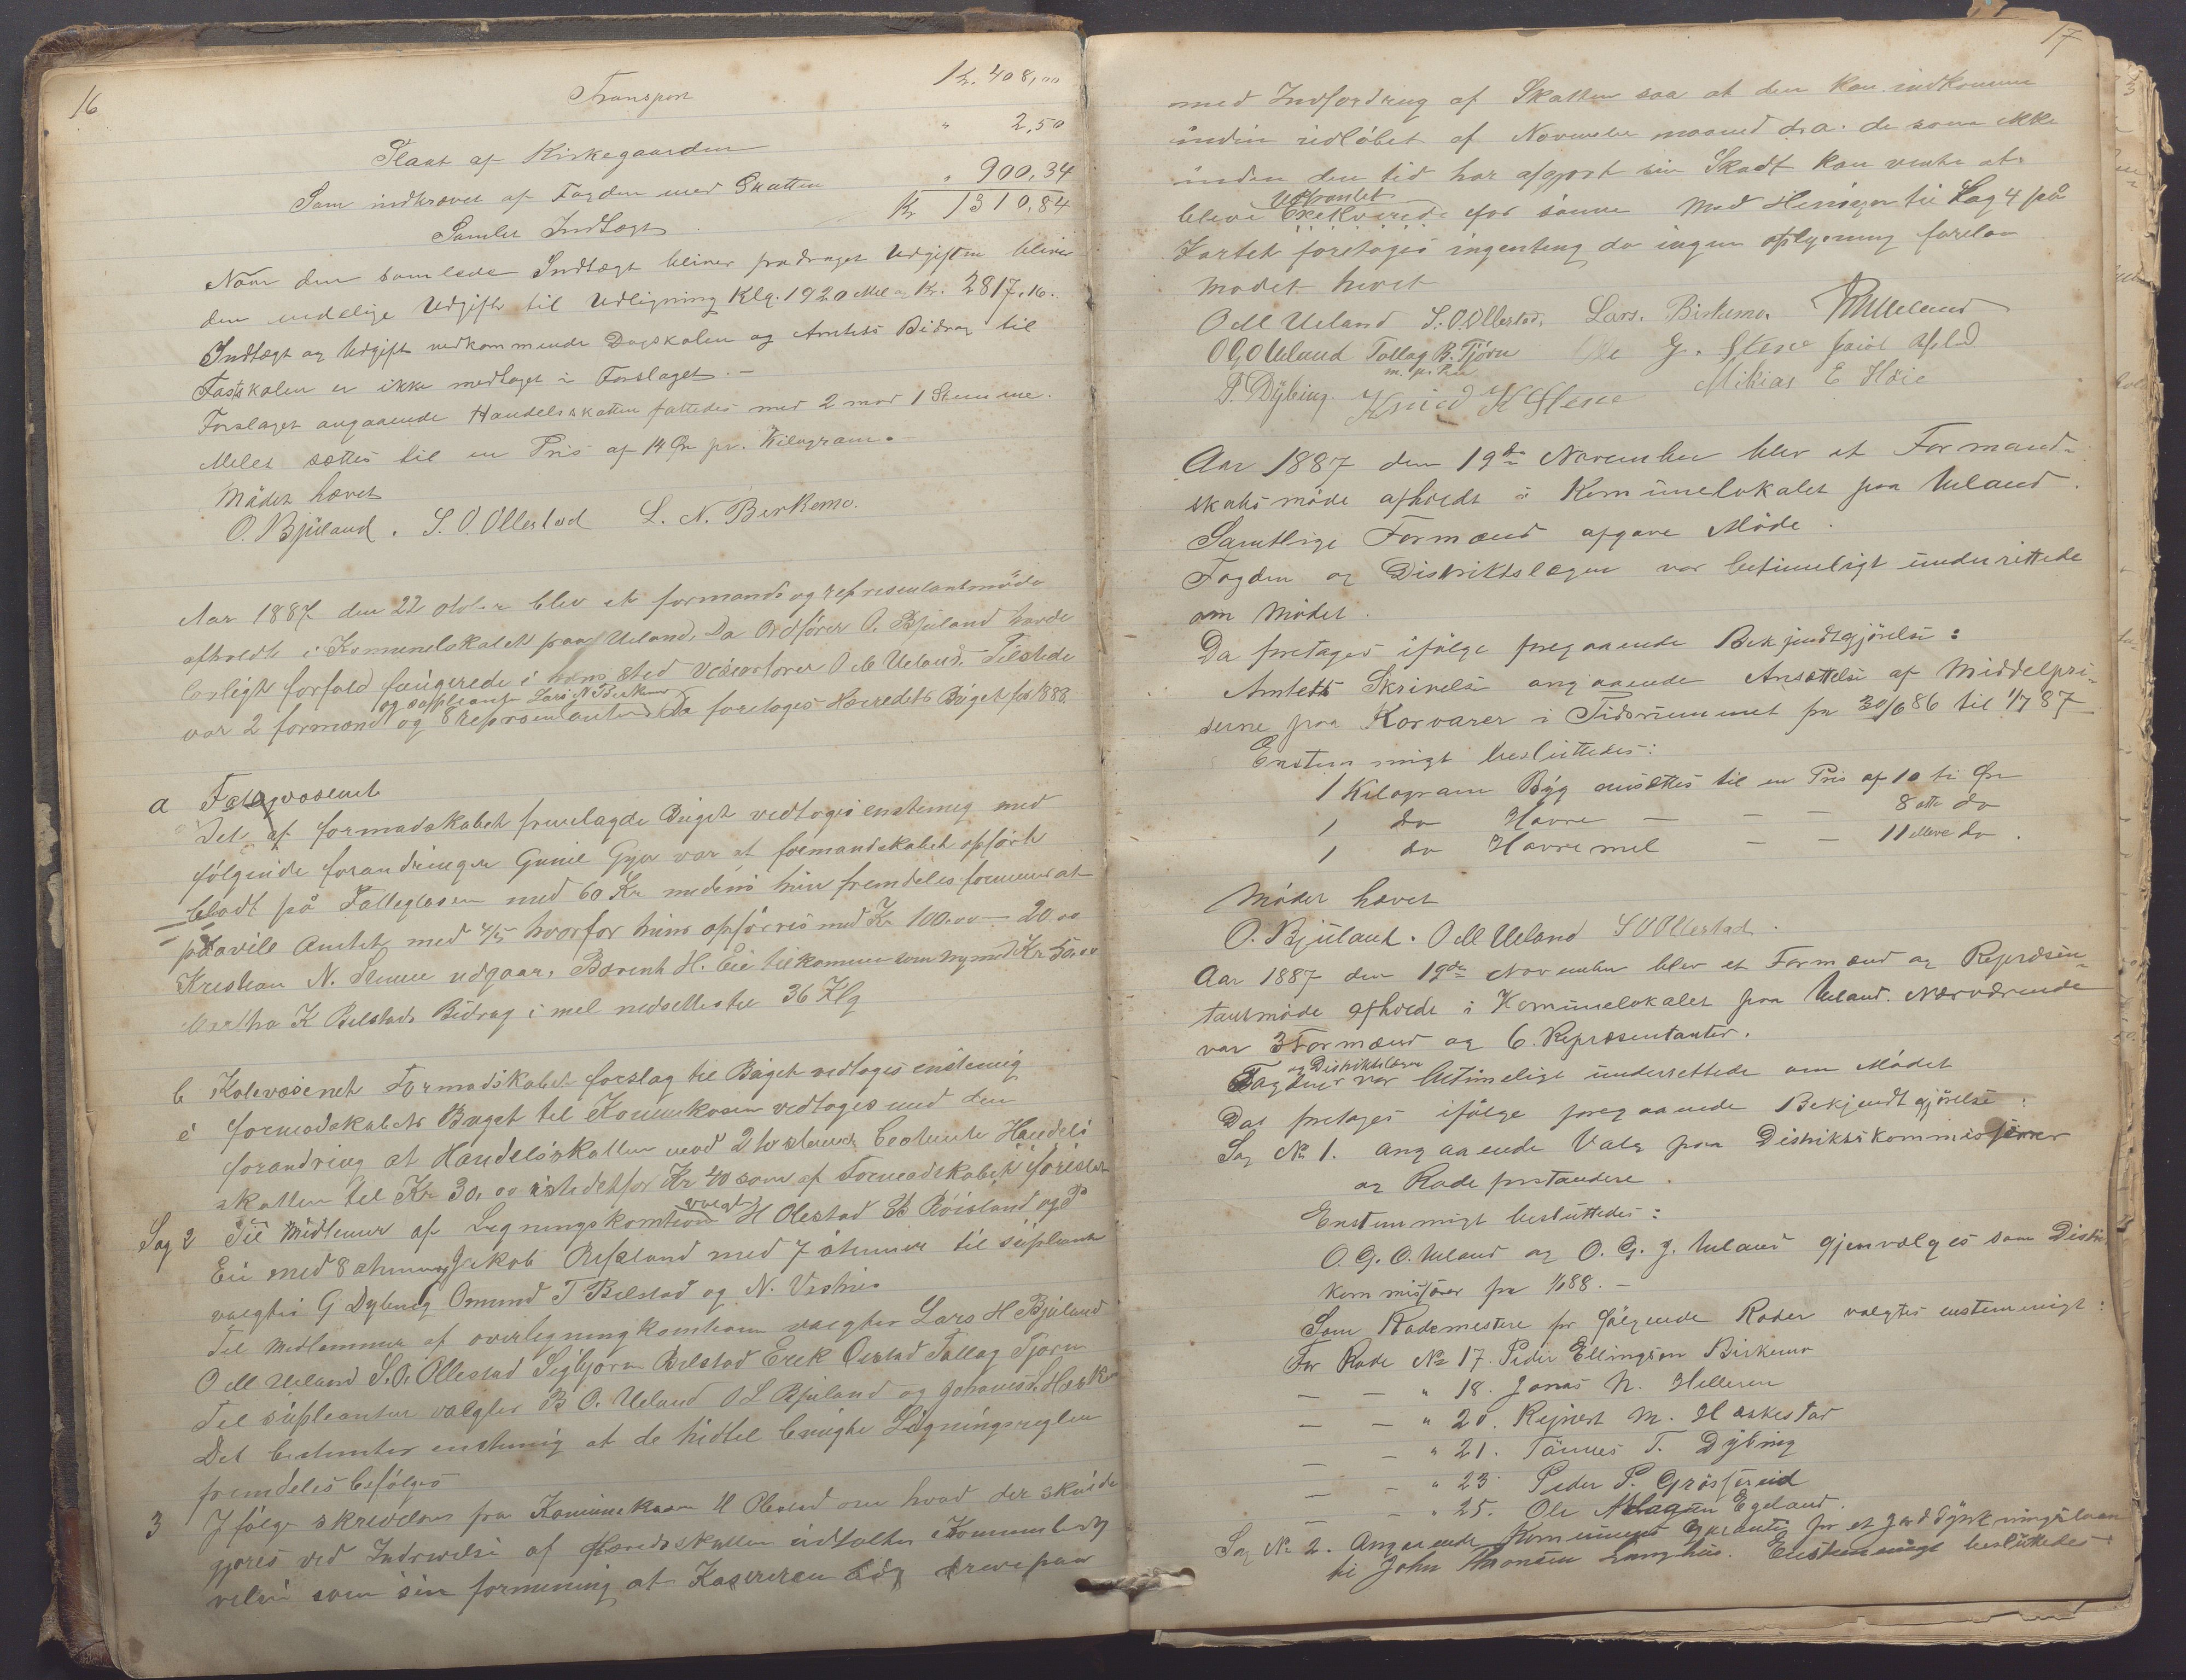 16
Transport Kr. 408,00
Slaat af Kirkegaarden " 2,50
Som indkræves af Fogden med Skatten " 900,34
Samlet Indtægt Kr 1310,84
Naar den samlede Indtægt bliver fradraget Udgiften bliver
den endelige Udgift til Udligning Klg. 1920 Mel og Kr. 2817,16.
Indtægt og Udgift vedkommende Dagskolen og Amtets Bidrag til
Fastskolen er ikke medtaget i Forslaget. —
Forslaget angaaende Handelsskatten fattedes med 2 mod 1 Stemme.
Melet sættes til en Pris af 14 Øre pr. Kilogram. —
Mødet hævet
O. Bjuland. S. O. Ollestad L. N. Birkemo.
Aar 1887 den 22 otober blev et formands og represenlantmøde
afholdt i Komunelokalet paa Ueland. Da Ordfører O. Bjuland havde
lovligt forfald fungerede i hans sted viseordfører O M Ueland. Tilstede
og supleant Lars N Birkemo
var 2 formænd og 8 representanter Da foretoges Herredets Buget for 1888.
a Fattigvæsenet
Det af formadskabet fremlagde Buget vedtoges enstemig med
følgende forandringer Gunil Gya var af formandskabet opført
blodt på Fattigkasen med 60 Kr medens hun fremdeles formenes at
paavile Amtet med 4/5 hvorfor huns opførres med Kr 100.00 — 20.00
Kristian N. Stene udgaar, Bærent H. Eie tilkommer som ny med Kr 50.00
Martha K Bilstads Bidrag i mel nedsettes til 36 Klg
b Skolevæsenet Formadskabets forslag til Buget vedtoges enstemig
c formadskabets Buget til Komunekasen vedtoges med den
forandring at Handelsskatten med 2 to stemer bestemte Handels
skatten til Kr 30,00 istedetfor Kr 40 som af Formadskabet foreslaaet
Sag 2 Til Medlemer af Ligningskomtion valgt H Olestad B Røisland og P
Eie med 8 stemer Jakob Refsland med 7 stemer til suplant
valgtes G Dybing Omund T Bilstad og N. Vestnes
Til Medlemmer af overligningkomtionen valgtes Lars H Bjuland
O M Ueland S. O. Ollestad Sigbjørn Bilstad Erek Øestad Tallag Tjørn
Til supleanter valgtes B O. Ueland O L Bjuland og Johannes Heske
Det bestemtes enstemig at de hidtil brugte Ligningsregler
fremdeles befølges
3 Ifølge skrivelser fra Komunekasen H Olestad om hvad der skulde
gjøres ved Indrivelse af Heredsskatten udtalte Kommunebesty
relsen som sin formening at Kaserern bør drive paa
17
med Indfordring af Skatten saa at den kan indkomme
inden udløbet af November maaned d. a. de som ikke
inden den tid har afgjort sin Skadt kan vente at
Udpantet
bleve Exekverede for samme Med Hensyn til Sag 4 på
Kartet foretoges ingenting da ingen oplysning forelaa
Mødet hævet
O M Ueland S. O. Ollestad, Lars. Birkemo,
O G O Ueland Tallag B. Tjørn Ole G. Stene
m. p. Pen
P. Dybing. Knud K Stene Mikias E Høie
Aar 1887 den 19de November blev et Formand-
skabsmøde afholdt i Kommunelokalet paa Ueland.
Samtlige Formænd afgave Møde.
Fogden og Distriktslægen var betimeligt underrettede
om Mødet.
Da foretages ifølge foregaaende Bekjendtgjørelse:
Amtets Skrivelse angaaende Ansættelse af Middelpri-
serne paa Kornvarer i Tidsrummet fra 30/6 86 til 1/7 87
Enstemmigt besluttedes:
1 Kilogram Byg ansættes til en Pris af 10 ti Øre
1 do Havre — — — 8 otte do
1 do Havremel — — 11 elleve do.
Mødet hævet
O. Bjuland. O M Ueland S O Ollestad.
Aar 1887 den 19de November blev et Formænd og Repræsen-
tantmøde afholdt i Komunelokalet paa Ueland. Nærværende
var 3 Formænd og 6. Repræsentanter.
og Distriktslægen
Fogden var betimelige underrettede om Mødet
Da foretages ifølge foregaaende Bekjendtgjørelse:
Sag No 1. angaaende Valg paa Distriktskommissærer
og Rode forstandere.
Enstemmigt besluttedes:
O. G. O. Ueland og O. G. J. Ueland gjenvælges som Distri
kommissærer fra 1/1 88. —
Som Rodemestere for følgende Roder valgtes enstemmigt:
For Rode No 17. Peder Ellingsen Birkemo
— — " 18. Jonas N. Helleren
— — " 20. Rejnert M. Haskestad
— — " 21. Tønnes T. Dybing
— — " 23 Peder P. Grøsfjeid
— — " 25. Ole Magnn Egeland.
Sag No 2. Angaaende Kommunens Garanti for et Jorddyrkningslaan
til John Thorsen Langhus. Enstemmigt besluttedes